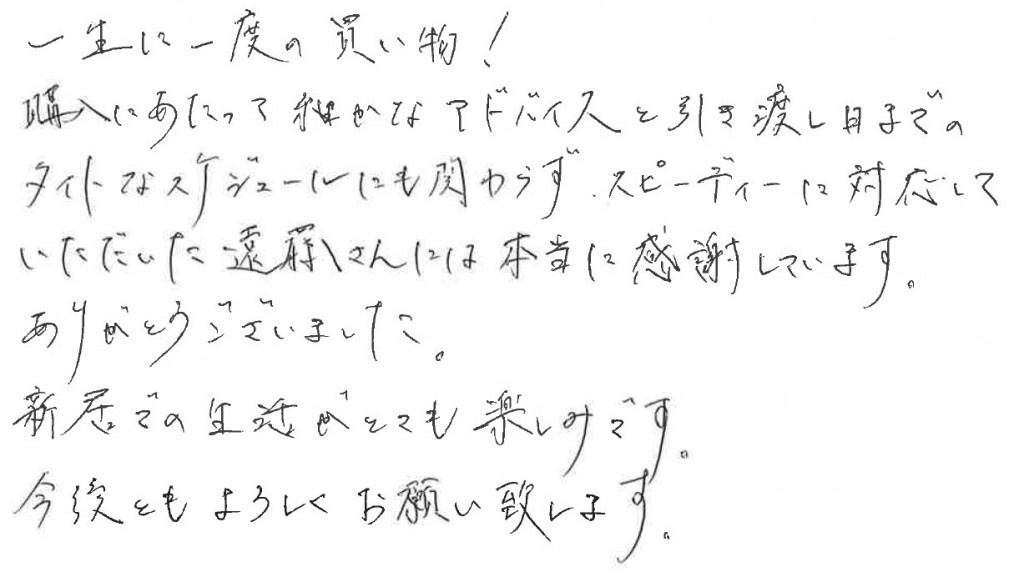 一生に一度の買い物！
購入にあたって細かなアドバイスと引き渡し日までの
タイトなスケジュールにも関わらず、スピーディーに対応して
いただいた遠藤さんには本当に感謝しています。
ありがとうございました。
新居での生活がとても楽しみです。
今後ともよろしくお願い致します。